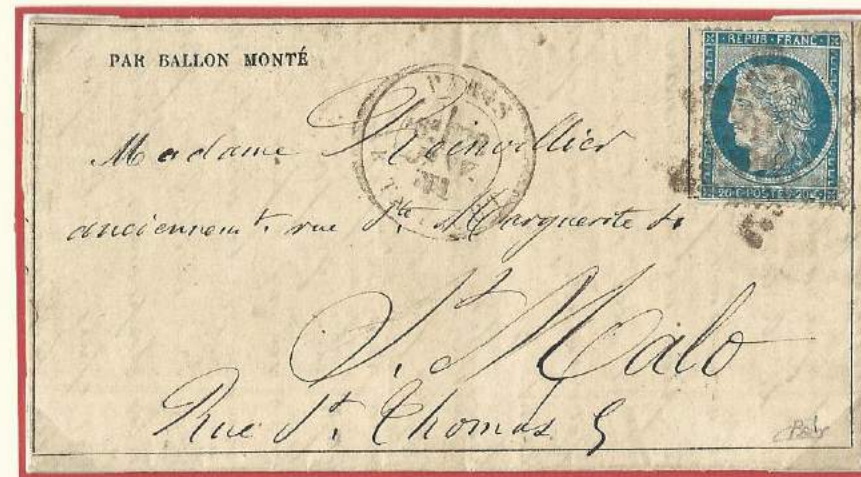 PAR BALLON MONTÉ
REPUB·FRANC
20·C·POSTES·20·C
PARIS
Madame
anciennemt. rue Ste. Marguerite
St. Malo
Rue St. Thomas 5